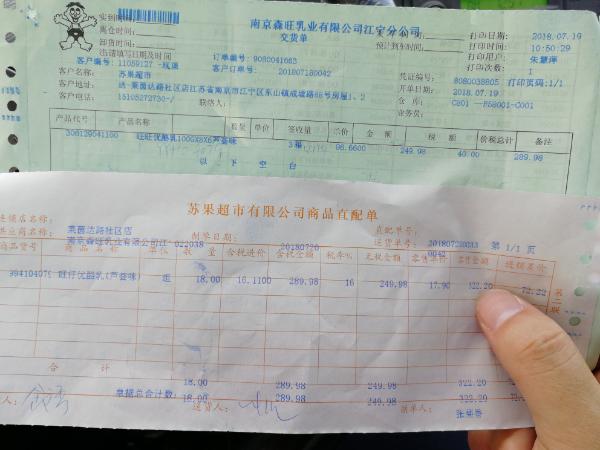 实到时间
南京森旺乳业有限公司江宁分公司
打印日期: 2018.07.19
离仓时间:
交货单
打印时间: 10:50:29
卸货时间:
预计到车时间:
打印用户:
出清填写日期及时间
打印次数: 1
客户编号: 11059127
订单编号: 9080041663
凭证编号: 8080038805 打印页码:1/1
客户名称: 苏果超市
客户订单号: 201807180042
开单日期: 2018.07.19
客户地址:
仓 库:
客户电话: 15105272730-/
联络人:
业务员:
产品代号 产品名称 数量 单价 签收量 单价 金额 税额 价税总计 备注
旺旺优酪乳100GX8X6芦荟味 3箱 96.6600 249.98 40.00 289.98
以 下 空 白
苏果超市有限公司商品直配单
连锁店名称: 莱茵达路社区店
制单日期: 20180720
直配单号:
供应商名称: 南京森旺乳业有限公司江-022038
送货单号: 第 1/1 页
商品货号 商品名称 单位 数量 含税进价 含税金额 税率% 无税金额 零售单价 零售金额 进销差价
旺仔优酪乳(芦荟味) 组 18.00 16.1100 289.98 16 249.98 17.90 322.20
第二联
合 计 18.00 289.98 249.98 322.20
单据总合计数: 18.00 289.98 249.98 322.20
送货人:
制单人: